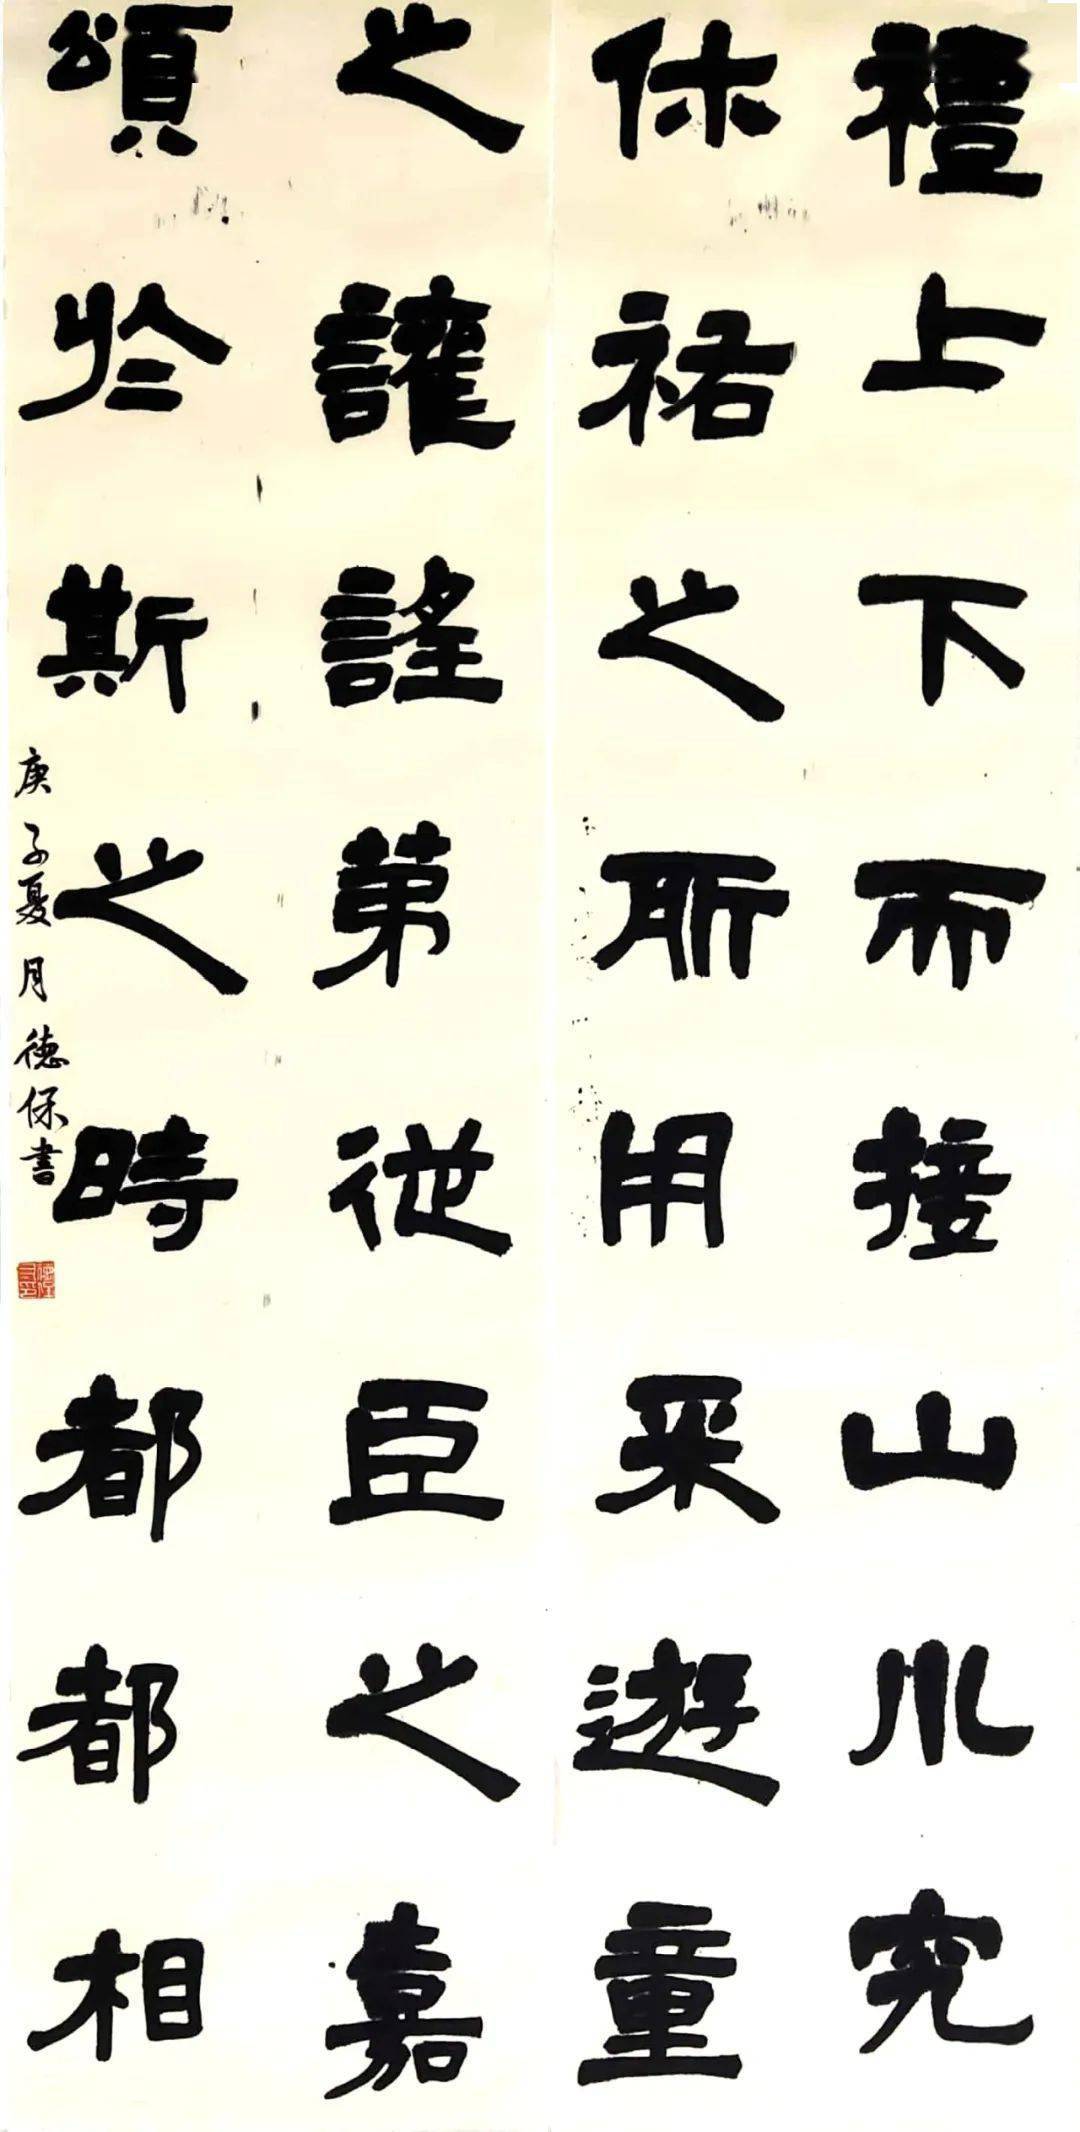 禮上下而接山川究
休祐之所用采遊童
之讙謠第從臣之嘉
頌於斯之時都都相
庚子夏月德保書